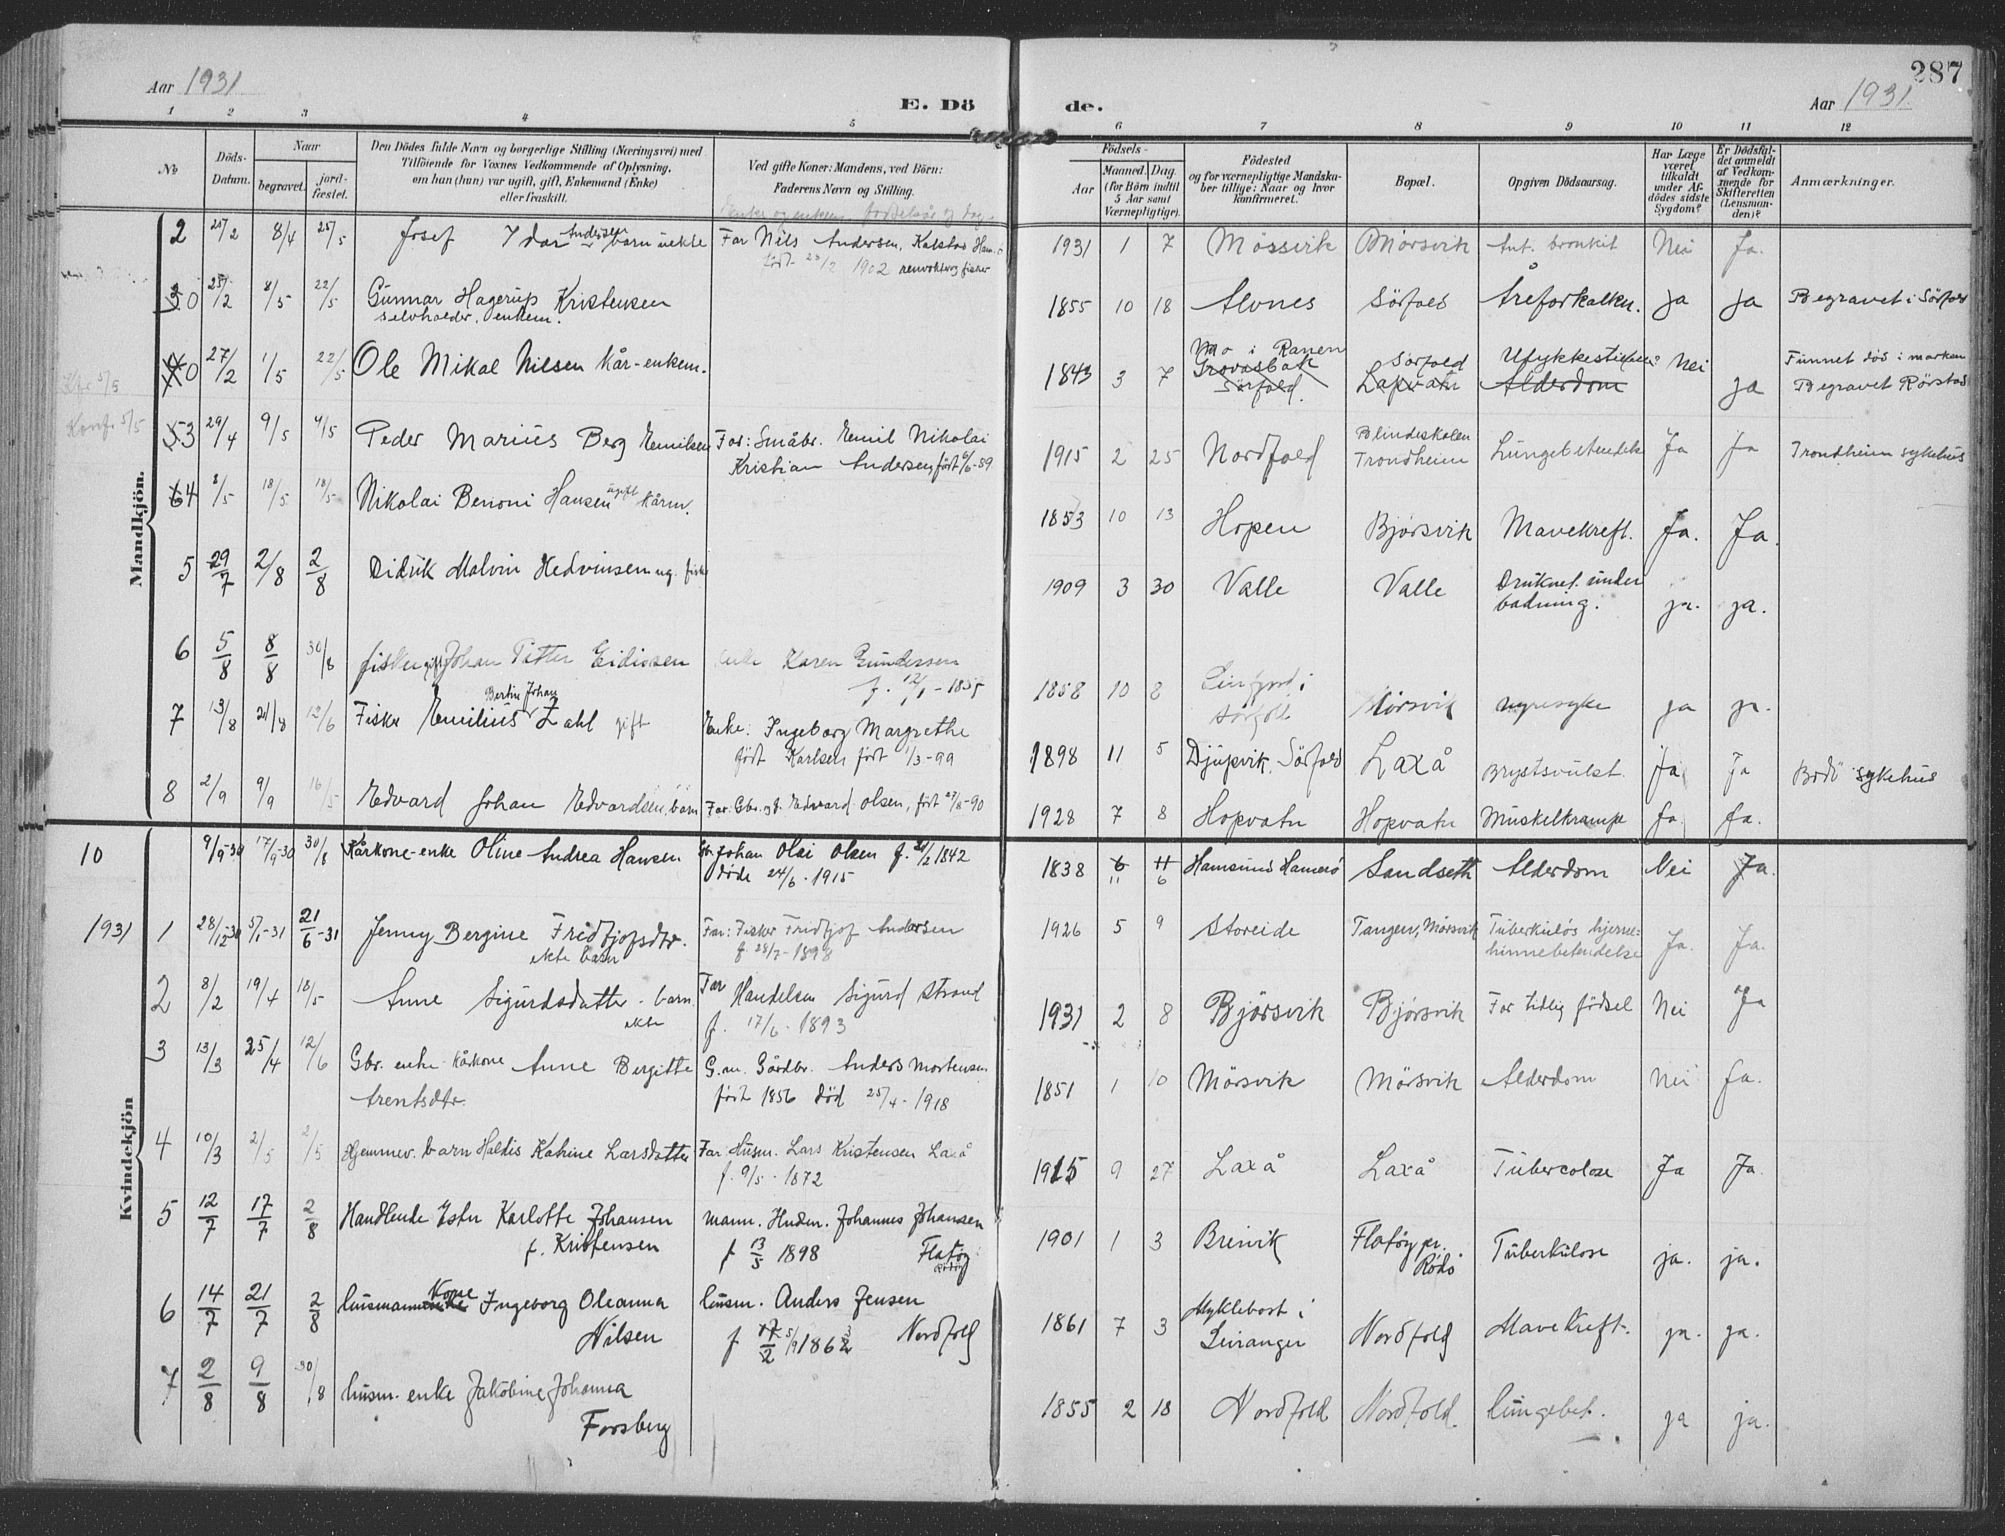 Aar 1931
E. Dö
de.
Aar 1931.
287
1 2 3 4 5 6 7 8 9 10 11 12
No
Döds-
Datum.
Naar
begravet.
jord-
fæstet.
Den Dödes fulde Navn og borgerlige Stilling (Næringsvei) med
Tilföiende for Voxnes Vedkommende af Oplysning,
om han (hun) var ugift, gift, Enkemand (Enke)
eller fraskilt.
Ved gifte Koner: Mandens, ved Börn:
Faderens Navn og Stilling.
Födsels-
Aar
Maaned.
Dag.
(for Börn indtil
5 Aar samt
Værnepligtige).
Födested
og for værnepligtige Mandska-
ber tillige: Naar og hvor
konfirmeret.
Bopæl.
Opgiven Dödsaarsag.
Har Læge
været
tilkaldt
under Af-
dödes sidste
Sygdom?
Er Dödsfal-
det anmeldt
af Vedkom-
mende for
Skifteretten
(Lensman-
den)?
Anmærkninger.
Mandkjön.
2 25/2 8/4 25/5 Josef Idar Andersen barn uekte Far Nils Andersen, Kalstad Ham.
født 1902 fisker
1931 1 7 Mössvik Mörsvik Ant. bronkit Nei Ja.
30 25/2 8/5 22/5 Gunnar Hagerup Kristensen
selvholder, enkem.
1855 10 18 Alvnes Sörfold Åreforkalkn. ja ja Begravet i Sörfold
0 27/2 1/5 22/5 Ole Mikal Nilsen kår-enkem.
1843 3 7 Mo i Ranen
Sörfold.
Sörfold
Laxvatn
Alderdom
Nei ja Funnet död i marken
Begravet Rörstad
Konf. 5/5
53 29/4 9/5 9/5 Peder Marius Berg Emilsen Far: Småbr. Emil Nikolai
Kristian Andersen, fört 6/6-89
1915 2 25 Nordfold Blindeskolen
Trondheim
Lungebetendelse Ja Ja Trondheim sykehus
64 8/5 18/5 18/5 Nikolai Benoni Hansen ugift kårm.
1853 10 13 Hopen Bjørsvik Mavekreft. Ja. Ja.
5 29/7 2/8 2/8 Didrik Malvin Hedvinsen ug. fisker
1909 3 30 Valle Valle Druknet under
badning. ja. ja.
6 5/8 8/8 30/8 fisker gift Johan Petter Eidissen enke Karen Gundersen
f. 12/1 - 1855
1858 10 8 Leirfjord i
Sörfold
Mörsvik nyresyke ja ja.
7 13/8 21/8 12/6 Fisker Emilius Bertin Johan Zahl gift Enke: Ingeborg Margrethe
født Karlsen fört 1/3-99
1898 11 5 Djupvik, Sörfold Laxå Brystsvulst Ja Ja Bodö sykehus
8 2/9 9/9 16/5 Edvard Johan Edvardsen, barn Far: Gbr. og f. Edvard Olsen, fört 27/8-90
1928 7 8 Hopvatn Hopvatn Muskelkrampe Ja Ja.
Kvindekjön
10 9/9-30 17/9-30 30/8 Kårkone-enke Oline Andrea Hansen Gbr. Johan Olai Olsen f. 21/2 1842
døde 24/6 - 1915
1838 6 11
11 6
Hamsund Hamerö Sandseth Alderdom Nei Ja.
1931 1 28/12-30 5/1-31 21/6-31 Jenny Bergine Fridtjofsdtr.
ekte barn
Far: Fisker Fridtjof Andersen
f. 28/7 - 1898
1926 5 9 Storeide Tangen, Mörsvik Tuberkulös hjerne-
hinnebetendelse Ja. Ja.
2 8/2 19/4 18/5 Anne Sigurdsdatter - barn
ekte
Far Handelsm Sigurd Strand
f. 17/6 - 1893
1931 2 8 Bjørsvik Bjørsvik For tidlig födsel Nei Ja
3 13/3 25/4 12/6 Gbr. enke kårkone Anne Bergitte
Arentsdtr.
G.m. Gårdbr. Anders Mortensen
fört 1856 død 25/4 - 1918
1851 1 10 Mörsvik Mörsvik Alderdom Nei Ja.
4 10/3 2/5 2/5 Hjemmev. barn Haldis Katrine Larsdatter Far: Husm. Lars Kristensen Laxå
f. 9/5 - 1872
1915 9 27 Laxå Laxå Tubercolose Ja Ja.
5 12/7 17/7 2/8 Handlende Ester Karlotte Johansen
f. Kristensen
mann. Hndm. Johannes Johansen
f 13/5 1898 Flatöy
1901 1 3 Breivik Flatöy pr.
Rödö
Tuberkulose ja. ja.
6 14/7 21/7 2/8 husmannskone Ingeborg Oleanna
Nilsen
husm. Anders Jensen
f 5/9 1862 Nordfold
1861 7 3 Myklebost i
Leiranger
Nordfold Mavekreft. ja. ja.
7 2/8 9/8 30/8 husm. enke Jakobine Johanna
Forsberg
1855 2 18 Nordfold Nordfold. lungebet. ja ja.